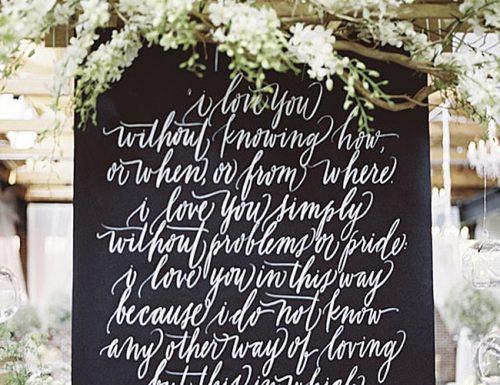 i love you
without knowing how,
or when, or from where.
i love you simply
without problems or pride:
i love you in this way
because i do not know
any other way of loving
but this in which